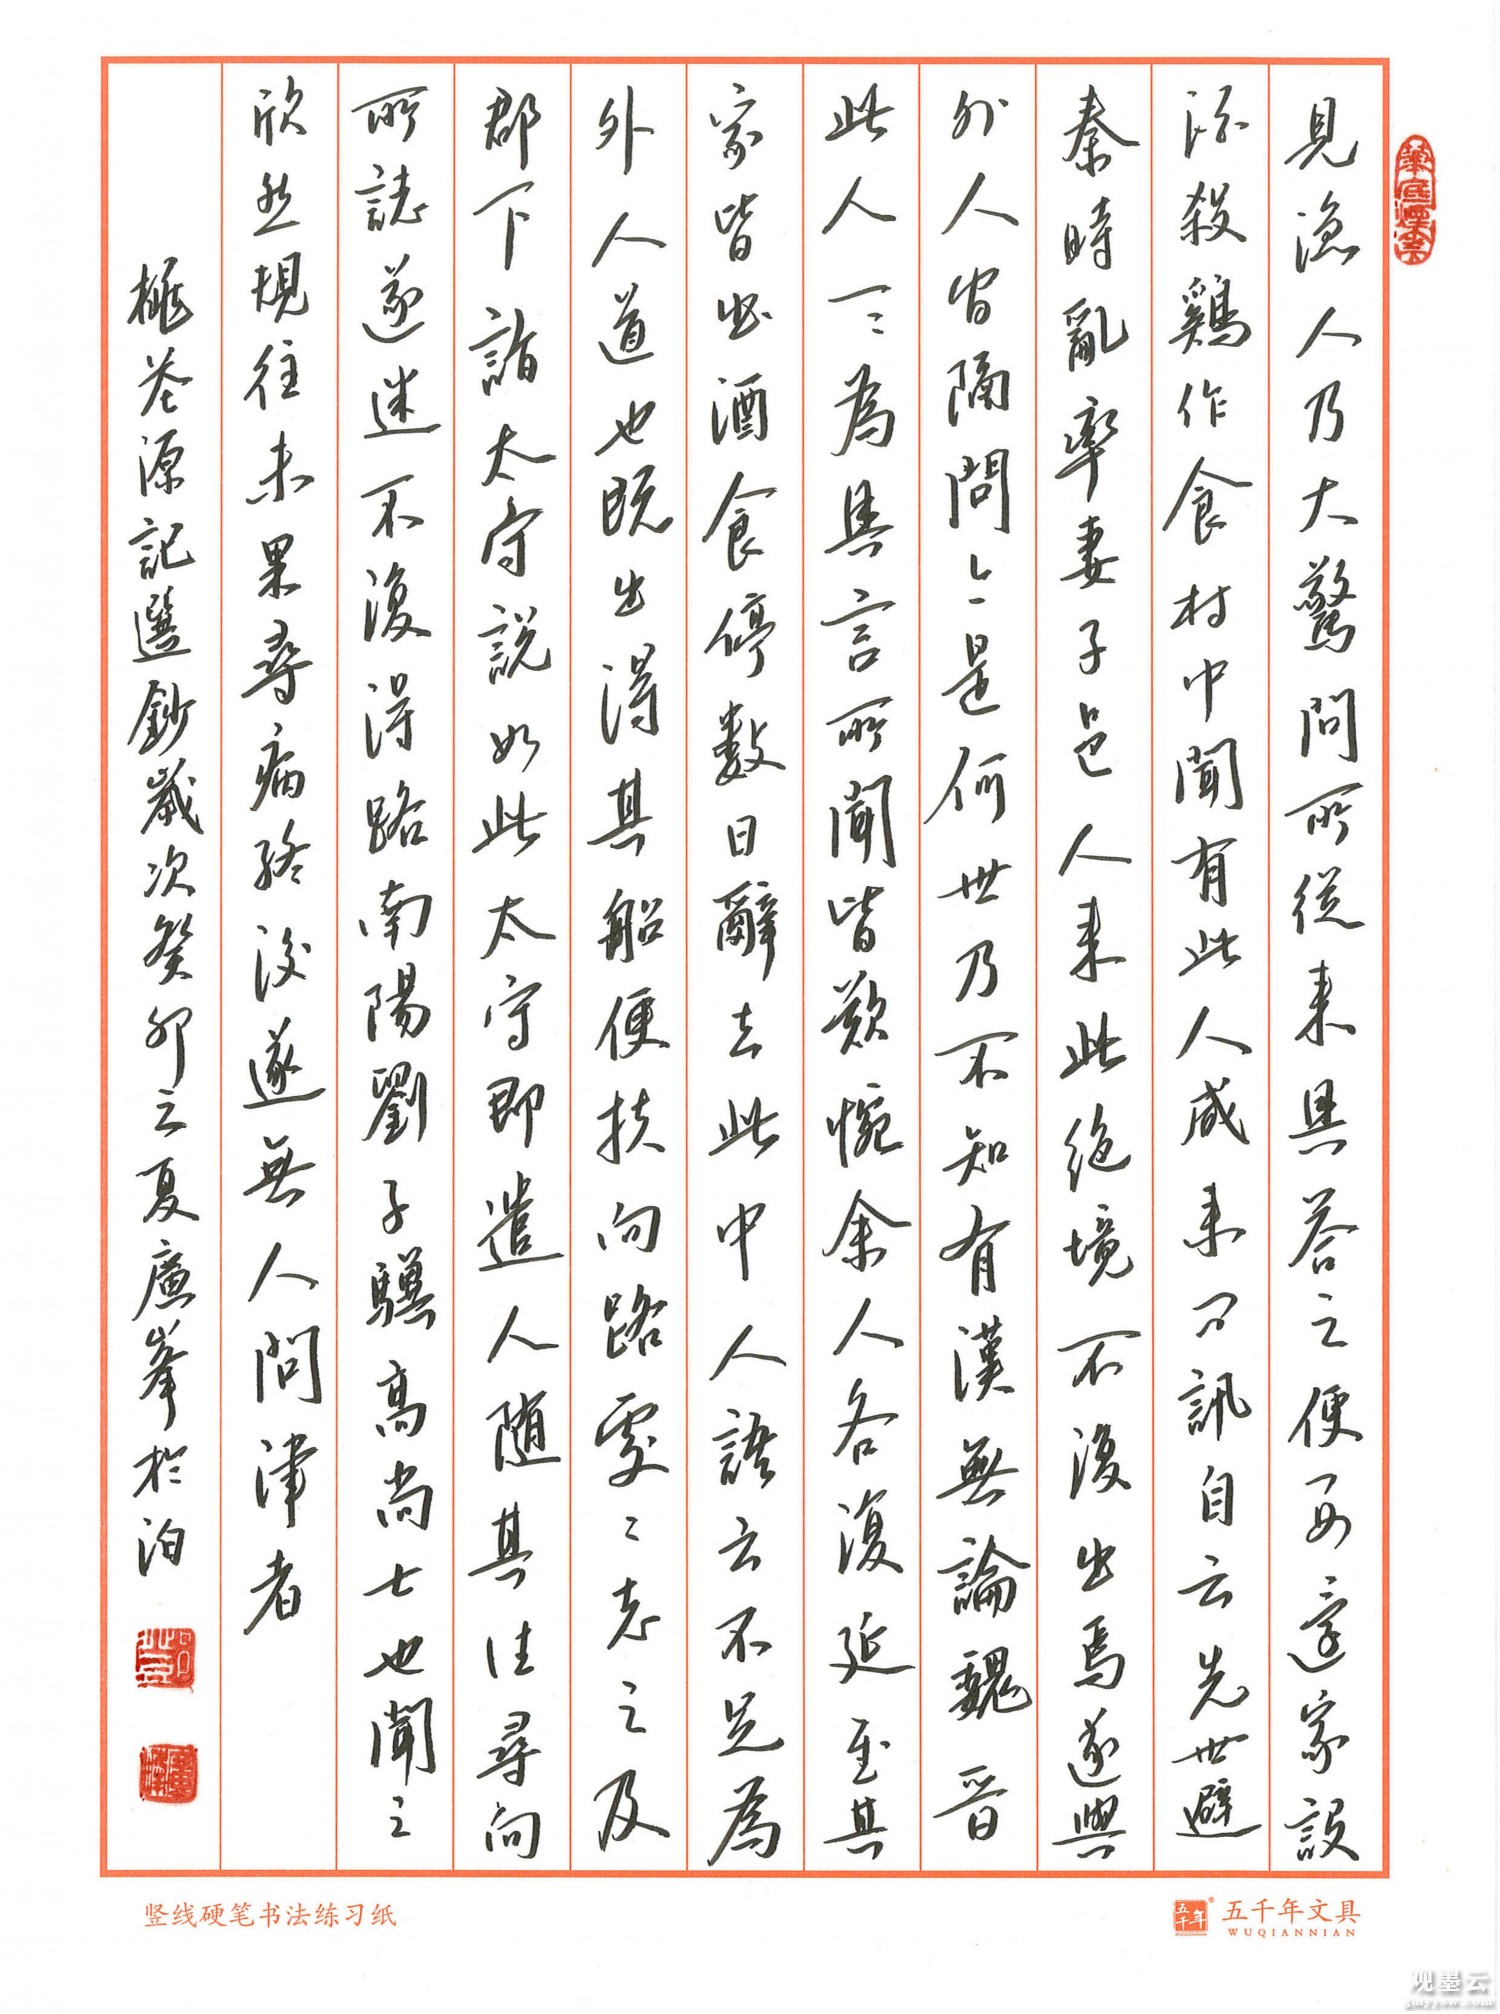 見漁人乃大驚問所從来具荅之便要還家設
酒殺鷄作食村中聞有此人咸来問訊自云先世避
秦時亂率妻子邑人来此绝境不復出焉遂與
外人間隔問今是何世乃不知有漢無論魏晋
此人一二為具言所聞皆歎惋余人各復延至其
家皆出酒食停数日辭去此中人語云不足為
外人道也既出得其船便扶向路處〻志之及
郡下詣太守說如此太守即遣人随其往尋向
所誌遂迷不復得路南陽劉子驥高尚士也聞之
欣然規往未果尋病终後遂無人問津者
桃花源記選鈔歲次癸卯之夏廉峯於泊
竖线硬笔书法练习纸
五千年文具
WUQIANNIAN
观墨云